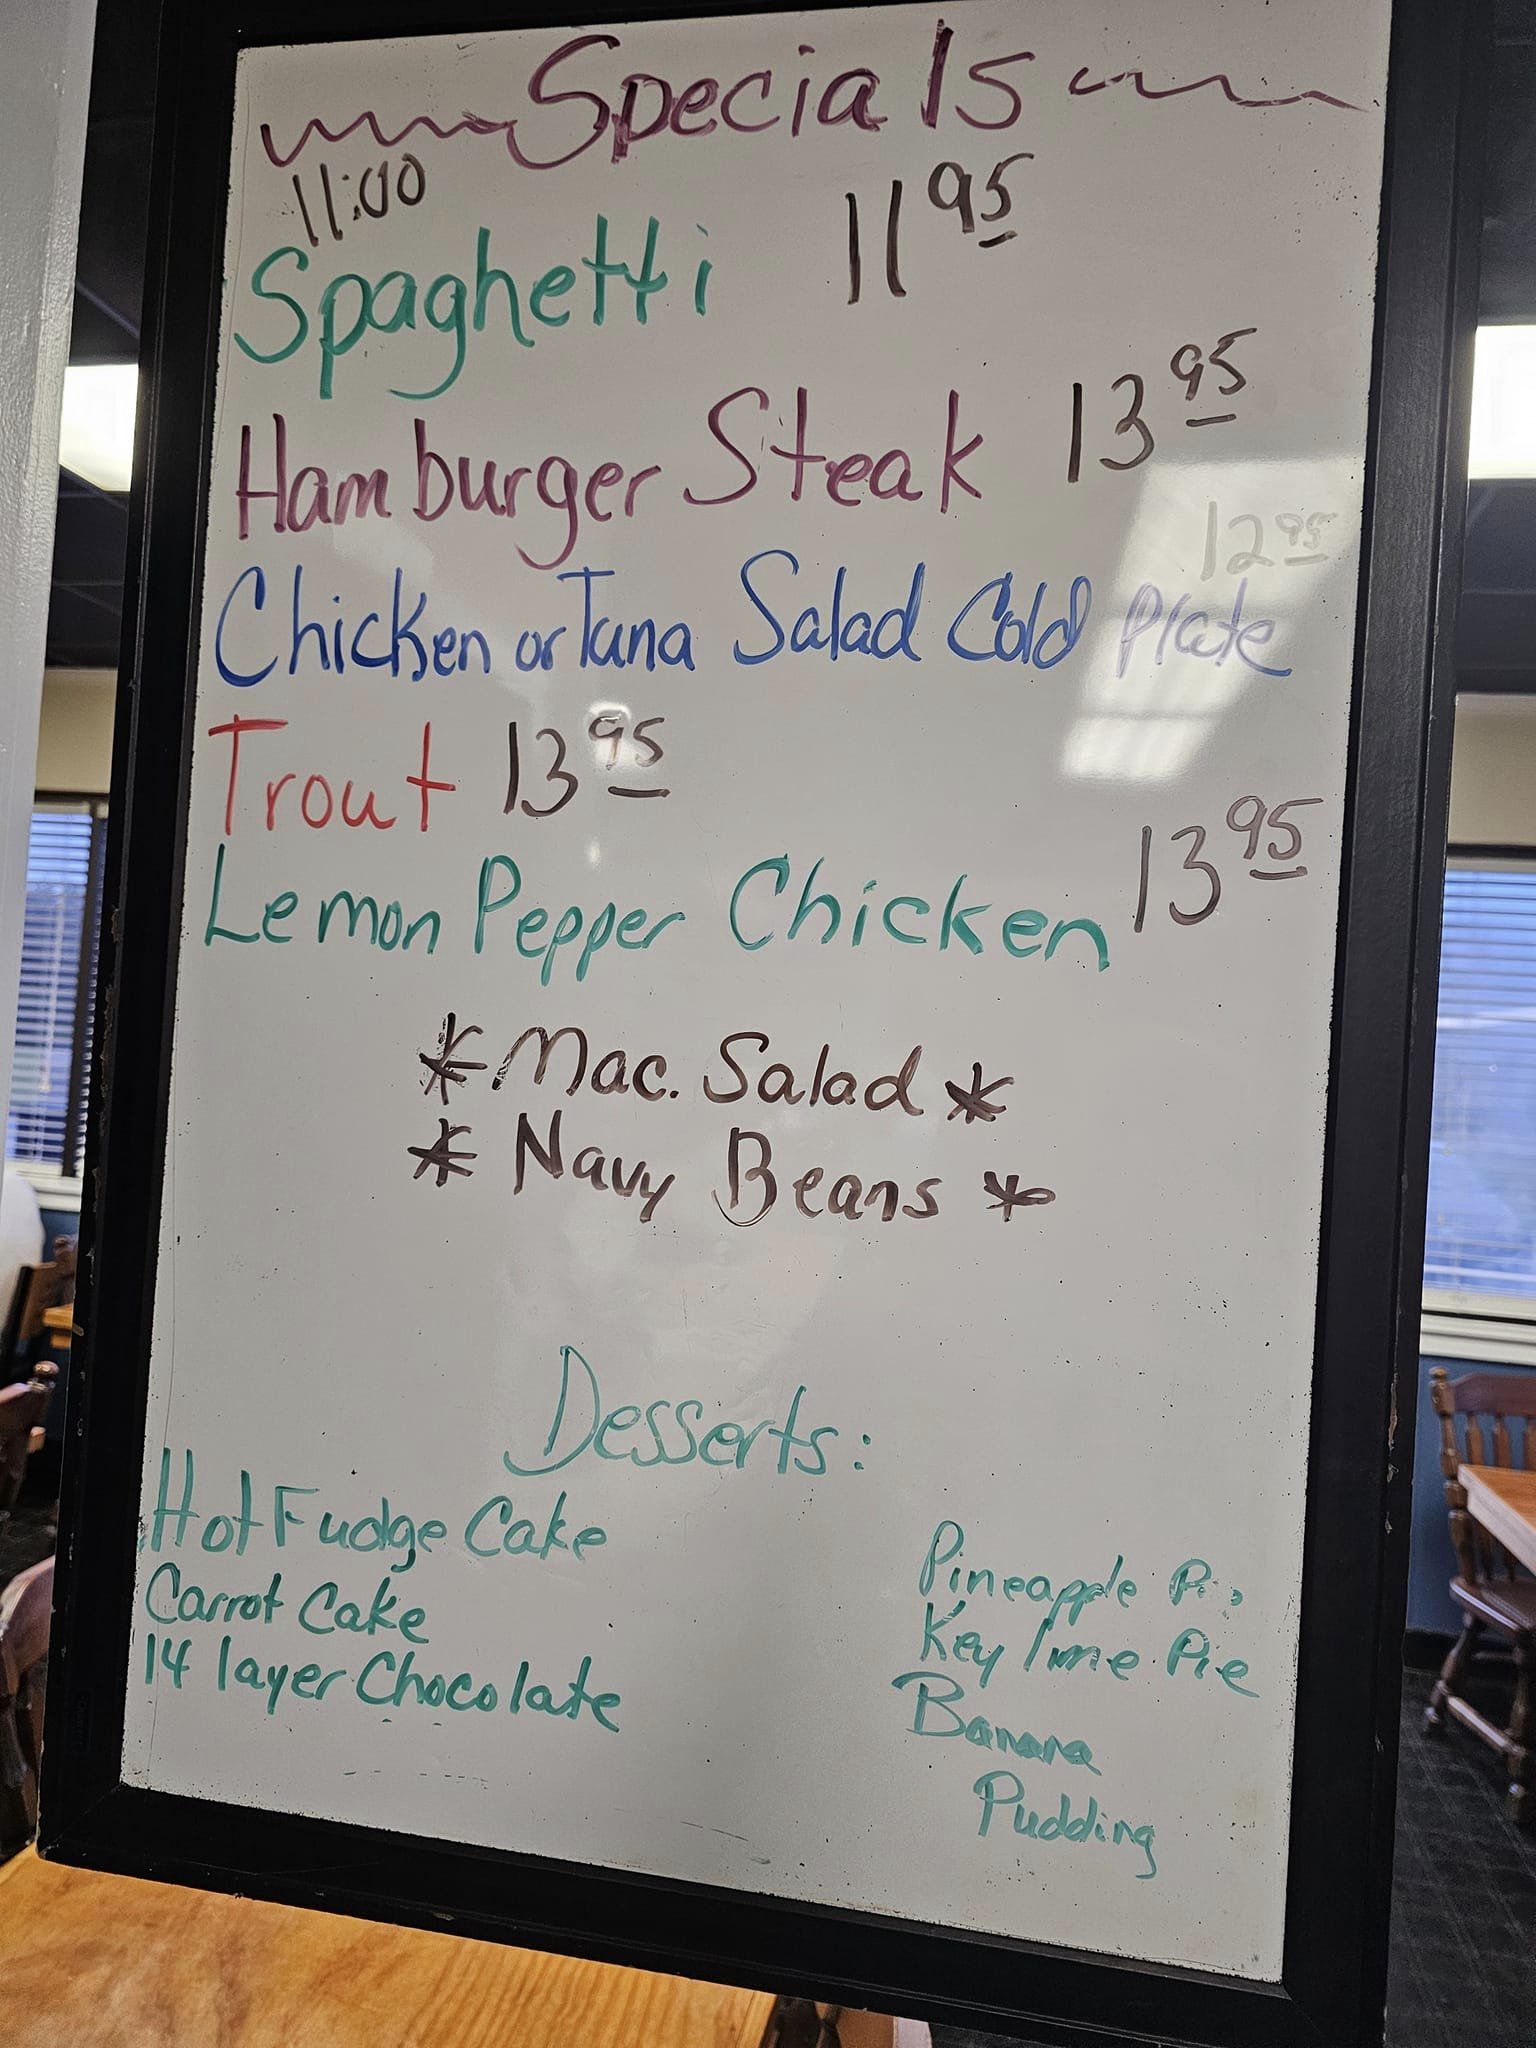 Specials
11:00
Spaghetti 11 95
Hamburger Steak 13 95
12 95
Chicken or Tuna Salad Cold Plate
Trout 13 95
Lemon Pepper Chicken 13 95
* Mac. Salad *
* Navy Beans *
Desserts:
Hot Fudge Cake
Carrot Cake
14 layer Chocolate
Pineapple
Key lime Pie
Banana
Pudding